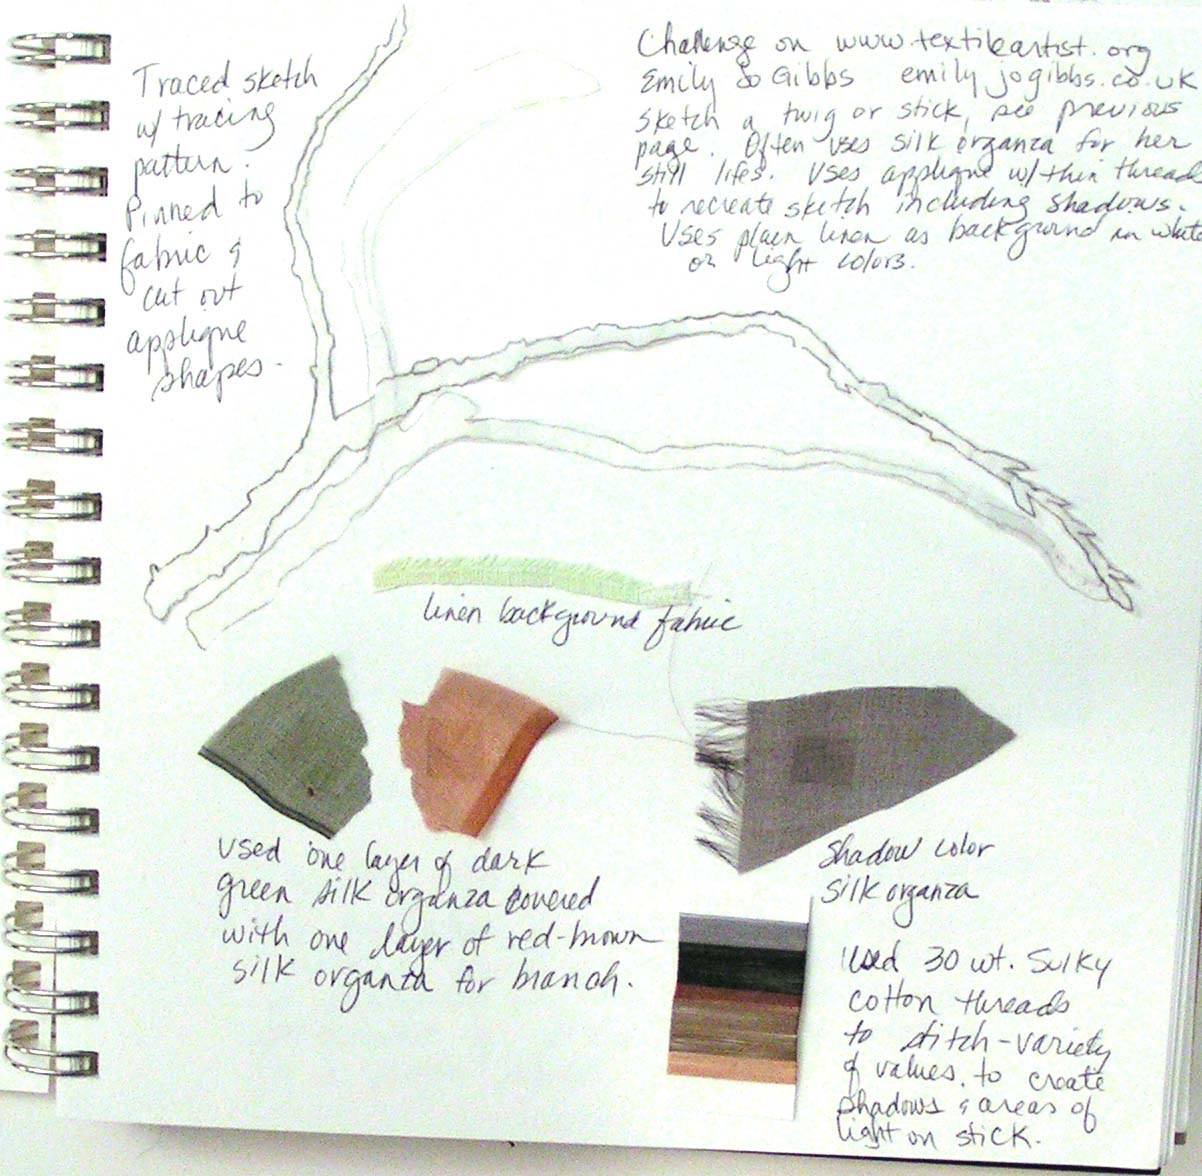 Traced sketch
w/ tracing
pattern.
Pinned to
fabric &
cut out
applique
shapes.
Challenge on www.textileartist.org
Emily Jo Gibbs emilyjogibbs.co.uk
Sketch a twig or stick, see previous
page. Often uses silk organza for her
still lifes. Uses applique w/ thin threads
to recreate sketch including shadows.
Uses plain linen as background in white
or light colors.
linen background fabric
Used one layer of dark
green silk organza covered
with one layer of red-brown
silk organza for branch.
Shadow color
silk organza
Used 30 wt. Sulky
cotton threads
to stitch-variety
of values, to create
shadows & areas of
light on stick.